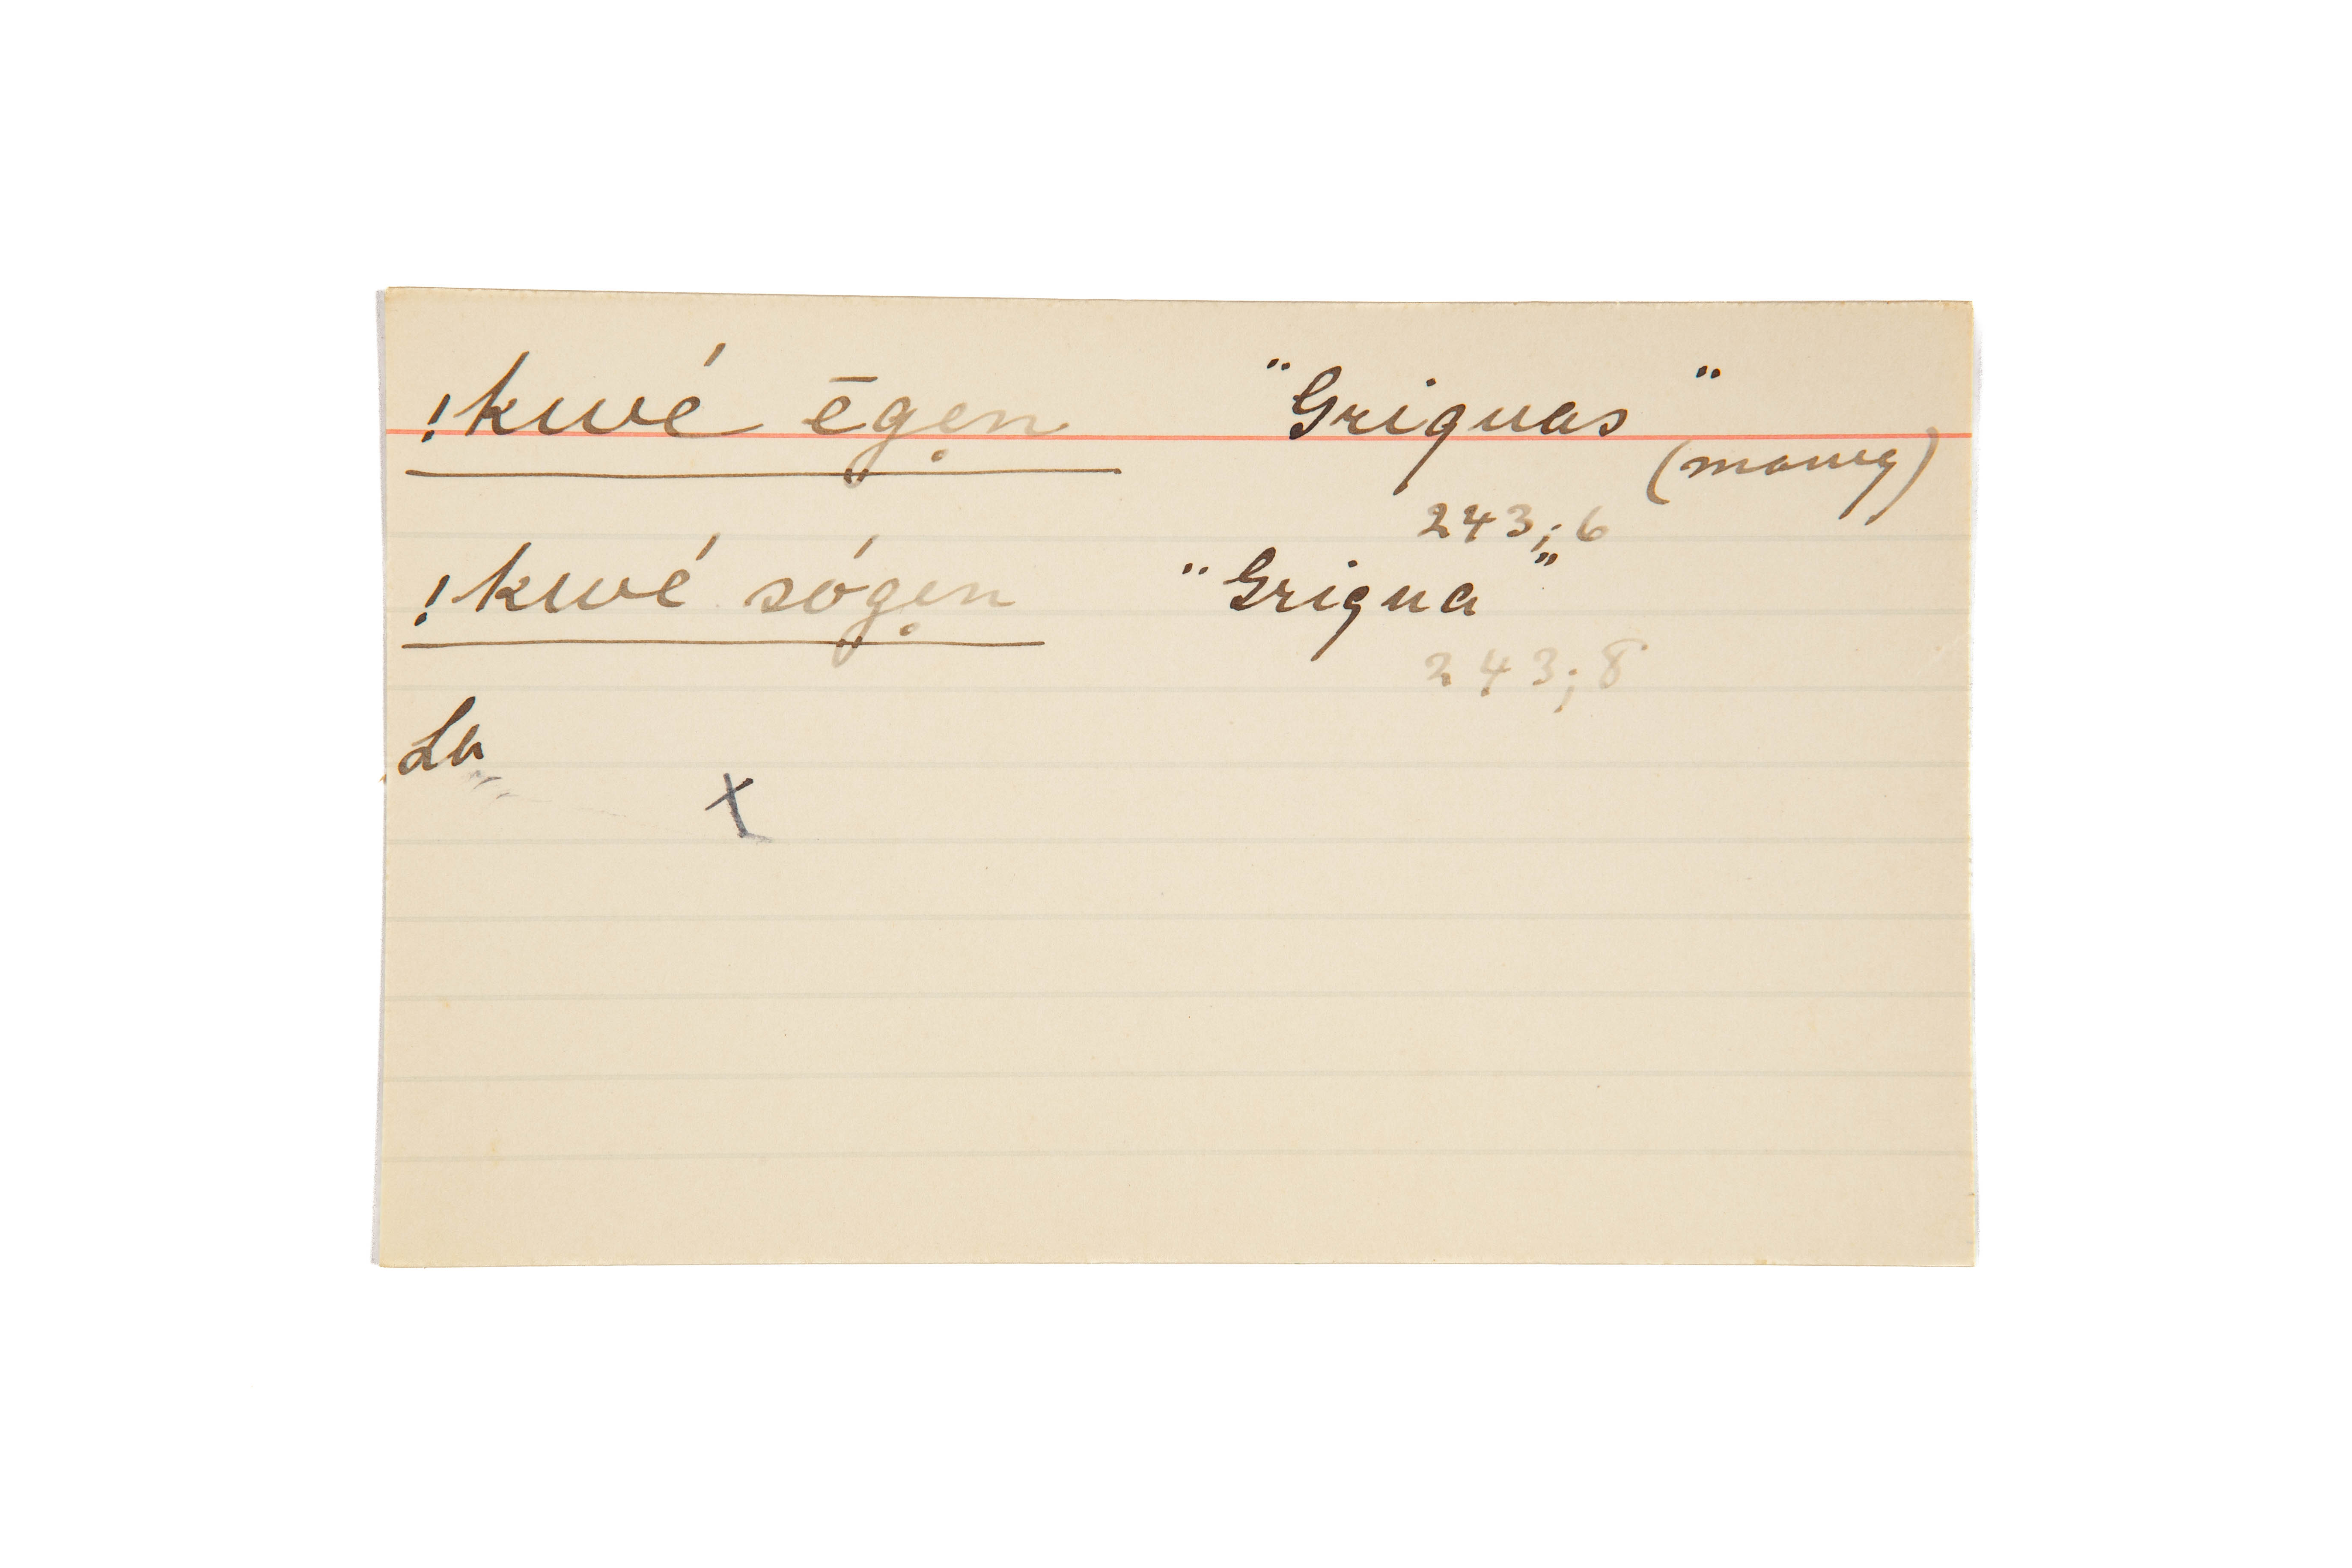 !kwé ēg̤ẹn "Griquas"
(many)
243; 6
!kwé sóg̤ẹn "Griqua"
243; 8
Lb
X